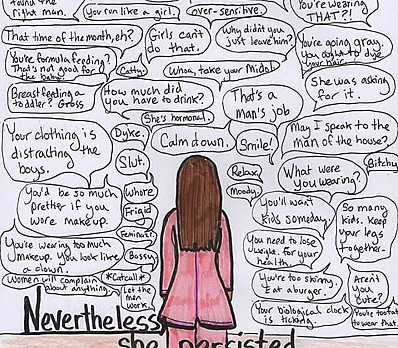 found the
right man.
You ran like a girl.
over-sensitive.
You're wearing
THAT?!
That time of the month, eh?
Girls can't
do that.
Why didn't you
just leave him?
You're going gray.
You ought to dye
your hair.
You're formula feeding?
That's not good for
the baby!
Catty.
Whoa, take your Midol
She was asking
for it.
Breastfeeding a
toddler? Gross
How much did
you have to drink?
That's a
man's job
She's hormonal.
Your clothing is
distracting the
boys.
Dyke.
Calm down.
Smile!
May I speak to the
man of the house?
Slut.
Relax
What were
you wearing?
Bitchy
You'd be so much
prettier if you
wore makeup.
Whore
Frigid
Moody.
You'll want
kids someday.
So many
kids. Keep
your legs
together.
Feminazi.
You're wearing too much
makeup. You look like
a clown.
Bossy
You need to lose
weight. for your
health.
Women will complain
about anything.
*Catcall*
You're too skinny.
Eat a burger.
Aren't
you
cute?
Let the
men
work.
Your biological clock
is ticking.
You're too fat
to wear that.
Nevertheless
she persisted